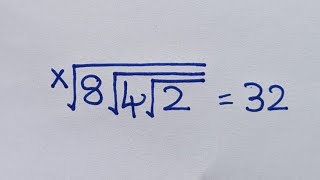 ˣ√(8√(4√2)) = 32